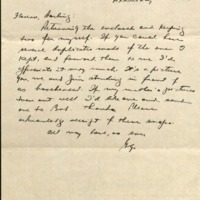 Returning the enclosed and keeping
two for myself. If you could have
several duplicates made of the one I
kept, and forward them to me I'd
appreciate it very much. It's a picture
you me and Jim standing in front
If my mother's pictures
turn out well I'd like one and send
one to Bob. Thanks. Please
acknowledge receipt of these snaps
All my love, as ever